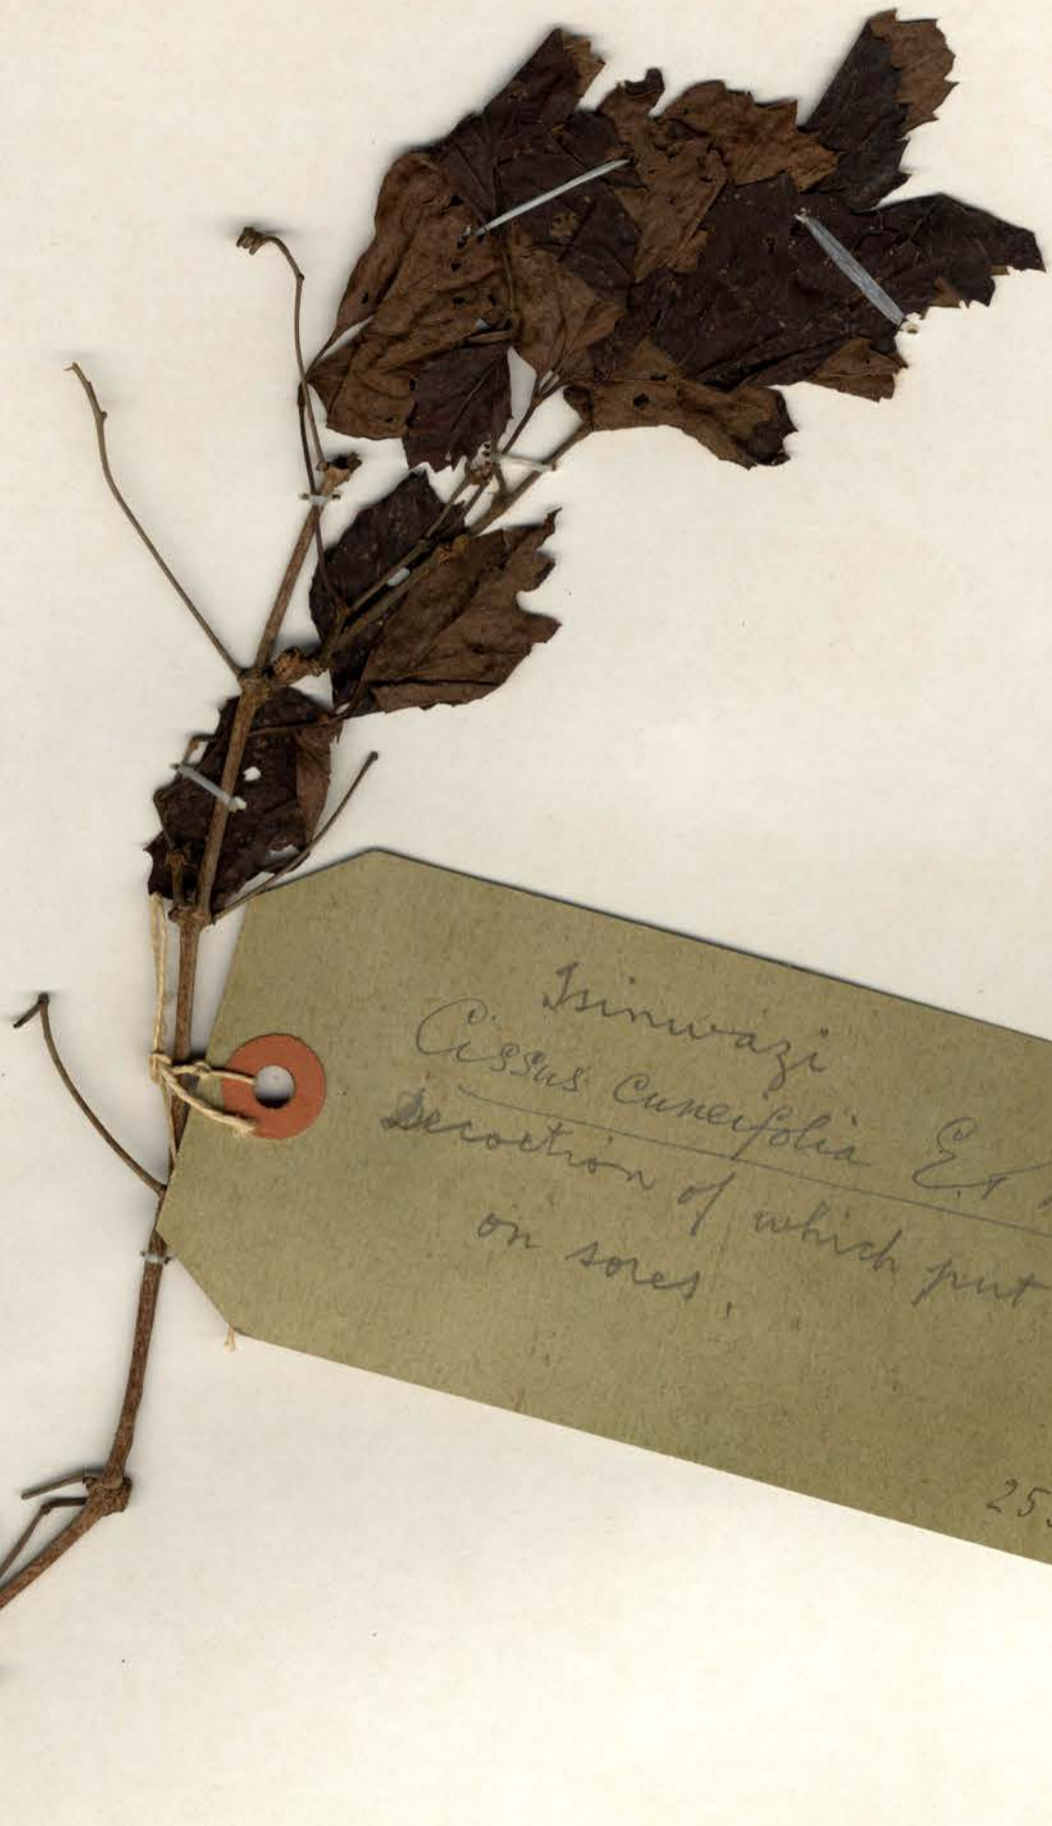 Isinwazi
Cissus cuneifolia E. &
Decoction of which put
on sores.
25